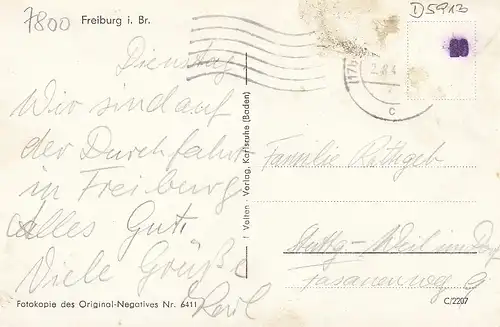 7800 Freiburg i. Br.
D5913
(17b
c
Dienstag
Wir sind auf
der Durchfahrt
in Freiburg
Alles Gut.
Viele Grüße
Karl
! Velten - Verlag, Karlsruhe (Baden)
Familie Rothgeb
Stuttg - Weil im Dorf
Fasanenweg 9
Fotokopie des Original-Negatives Nr. 6411
C/2207